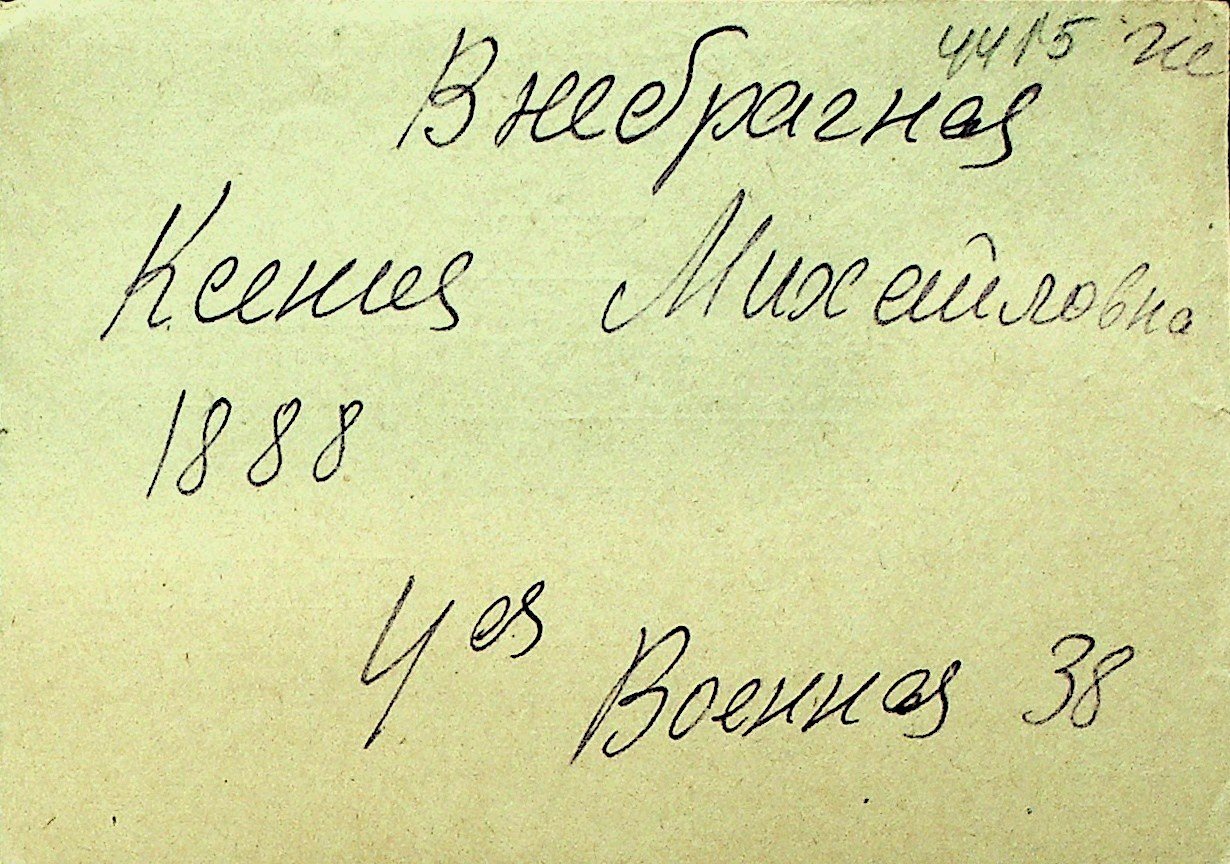 4415 же
Внебрагная
Ксения Михайловна
1888
4ая Военная 38